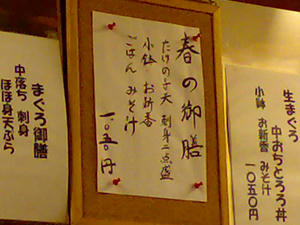 生まぐろ
中おちとろ丼
小鉢 お新香 みそ汁
一〇五〇円
春の御膳
たけの子天 刺身二点盛
小鉢 お新香
ごはん みそ汁
一〇五〇円
まぐろ御膳
中落ち 刺身
ほほ身天ぷら